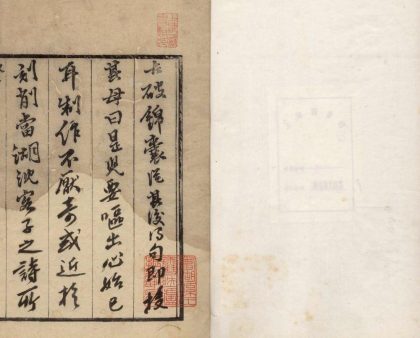 古破錦囊從其後得句即投
其母曰是兒要嘔出心始已
耳制作不厭奇或近於
刻削當湖沈客子之詩所